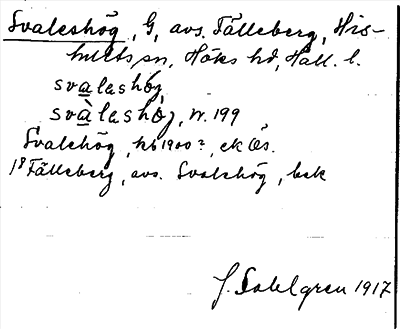 Svaleshög, G, avs. Fälleberg, His-
hults sn, Höks hd, Hall. l.
svaleshög
svàleshö̀j, W. 199
Svalehög, hb 1900?, ek Ös.
18 Fälleberg, avs. Svalehög, bek
J. Sahlgren 1917